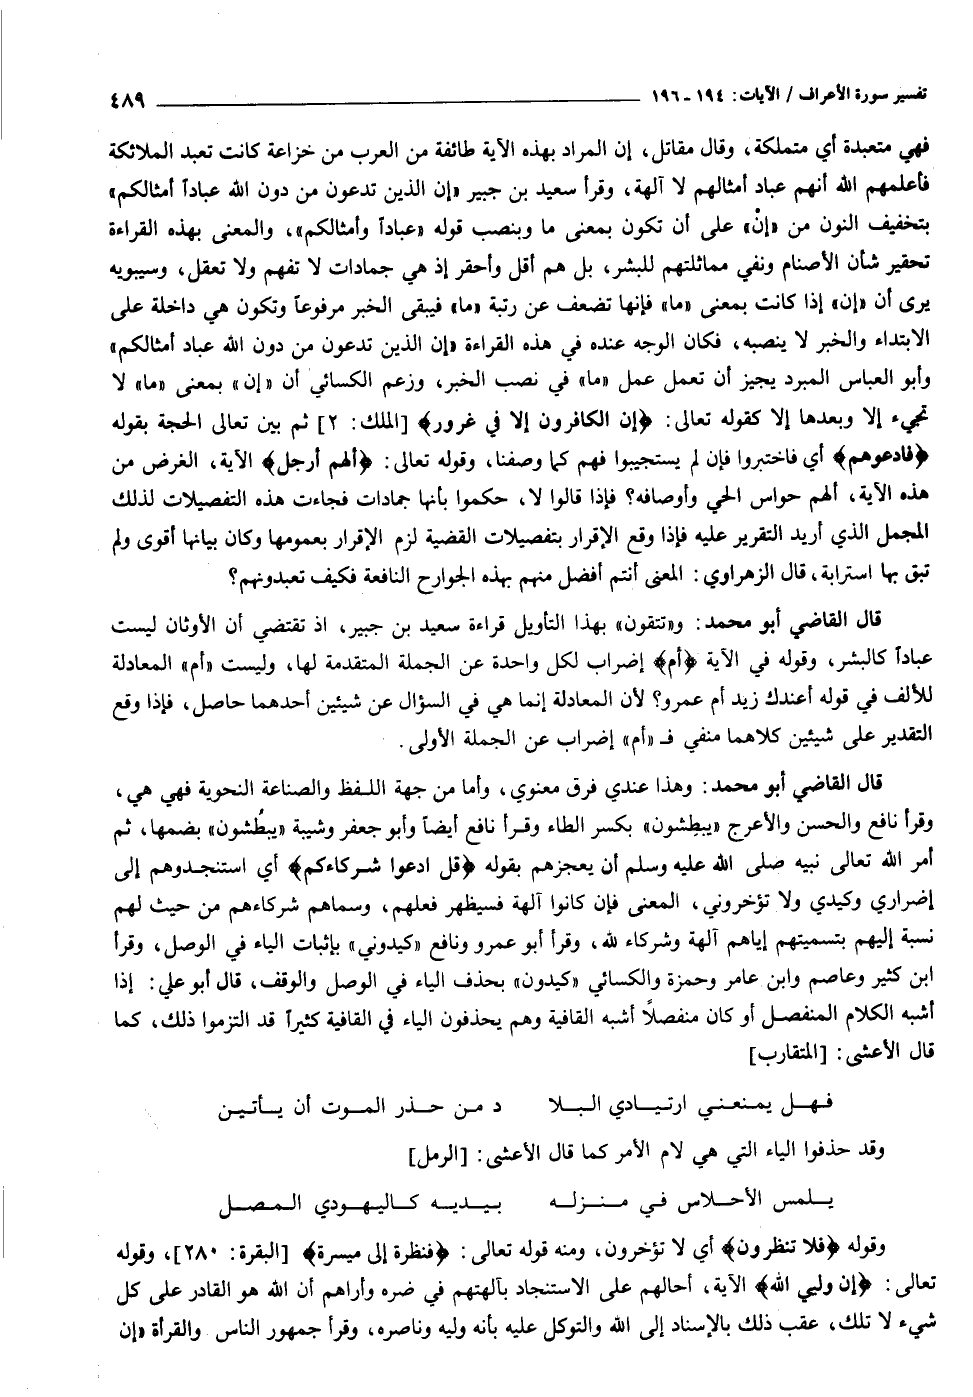 تفسير سورة الأعراف / الآيات: ١٩٤ - ١٩٦ ٤٨٩
فهي متعبدة أي متملكة، وقال مقاتل، إن المراد بهذه الآية طائفة من العرب من خزاعة كانت تعبد الملائكة
فأعلمهم الله أنهم عباد أمثالهم لا آلهة، وقرأ سعيد بن جبير «إن الذين تدعون من دون الله عباداً أمثالكم»
بتخفيف النون من «إنْ» على أن تكون بمعنى ما وبنصب قوله «عباداً وأمثالكم»، والمعنى بهذه القراءة
تحقير شأن الأصنام ونفي مماثلتهم للبشر، بل هم أقل وأحقر إذ هي جمادات لا تفهم ولا تعقل، وسيبويه
يرى أن «إن» إذا كانت بمعنى «ما» فإنها تضعف عن رتبة «ما» فيبقى الخبر مرفوعاً وتكون هي داخلة على
الابتداء والخبر لا ينصبه، فكان الوجه عنده في هذه القراءة «إن الذين تدعون من دون الله عباد أمثالكم»
وأبو العباس المبرد يجيز أن تعمل عمل «ما» في نصب الخبر، وزعم الكسائي أن «إن» بمعنى «ما» لا
تجيء إلا وبعدها إلا كقوله تعالى: ﴿إن الكافرون إلا في غرور﴾ [الملك: ٢] ثم بين تعالى الحجة بقوله
﴿فادعوهم﴾ أي فاختبروا فإن لم يستجيبوا فهم كما وصفنا، وقوله تعالى: ﴿ألهم أرجل﴾ الآية، الغرض من
هذه الآية، ألهم حواس الحي وأوصافه؟ فإذا قالوا لا، حكموا بأنها جمادات فجاءت هذه التفصيلات لذلك
المجمل الذي أريد التقرير عليه فإذا وقع الإقرار بتفصيلات القضية لزم الإقرار بعمومها وكان بيانها أقوى ولم
تبق بها استرابة، قال الزهراوي: المعنى أنتم أفضل منهم بهذه الجوارح النافعة فكيف تعبدونهم؟
قال القاضي أبو محمد: و«تتقون» بهذا التأويل قراءة سعيد بن جبير، اذ تقتضي أن الأوثان ليست
عباداً كالبشر، وقوله في الآية ﴿أم﴾ إضراب لكل واحدة عن الجملة المتقدمة لها، وليست «أم» المعادلة
للألف في قوله أعندك زيد أم عمرو؟ لأن المعادلة إنما هي في السؤال عن شيئين أحدهما حاصل، فإذا وقع
التقدير على شيئين كلاهما منفي فـ «أم» إضراب عن الجملة الأولى.
قال القاضي أبو محمد: وهذا عندي فرق معنوي، وأما من جهة اللفظ والصناعة النحوية فهي هي،
وقرأ نافع والحسن والأعرج «يبطِشون» بكسر الطاء وقرأ نافع أيضاً وأبو جعفر وشيبة «يبطُشون» بضمها، ثم
أمر الله تعالى نبيه صلى الله عليه وسلم أن يعجزهم بقوله ﴿قل ادعوا شركاءكم﴾ أي استنجدوهم إلى
إضراري وكيدي ولا تؤخروني، المعنى فإن كانوا آلهة فسيظهر فعلهم، وسماهم شركاءهم من حيث لهم
نسبة إليهم بتسميتهم إياهم آلهة وشركاء لله، وقرأ أبو عمرو ونافع «كيدوني» بإثبات الياء في الوصل، وقرأ
ابن كثير وعاصم وابن عامر وحمزة والكسائي «كيدون» بحذف الياء في الوصل والوقف، قال أبو علي: إذا
أشبه الكلام المنفصل أو كان منفصلاً أشبه القافية وهم يحذفون الياء في القافية كثيراً قد التزموا ذلك، كما
قال الأعشى: [المتقارب]
فهل يمنعني ارتيادي البلا د من حذر الموت أن يأتين
وقد حذفوا الياء التي هي لام الأمر كما قال الأعشى: [الرمل]
يلمس الأحلاس في منزله بيديه كاليهودي المصل
وقوله ﴿فلا تنظرون﴾ أي لا تؤخرون، ومنه قوله تعالى: ﴿فنظرة إلى ميسرة﴾ [البقرة: ٢٨٠]، وقوله
تعالى: ﴿إن وليي الله﴾ الآية، أحالهم على الاستنجاد بآلهتهم في ضره وأراهم أن الله هو القادر على كل
شيء لا تلك، عقب ذلك بالإسناد إلى الله والتوكل عليه بأنه وليه وناصره، وقرأ جمهور الناس والقرأة «إن